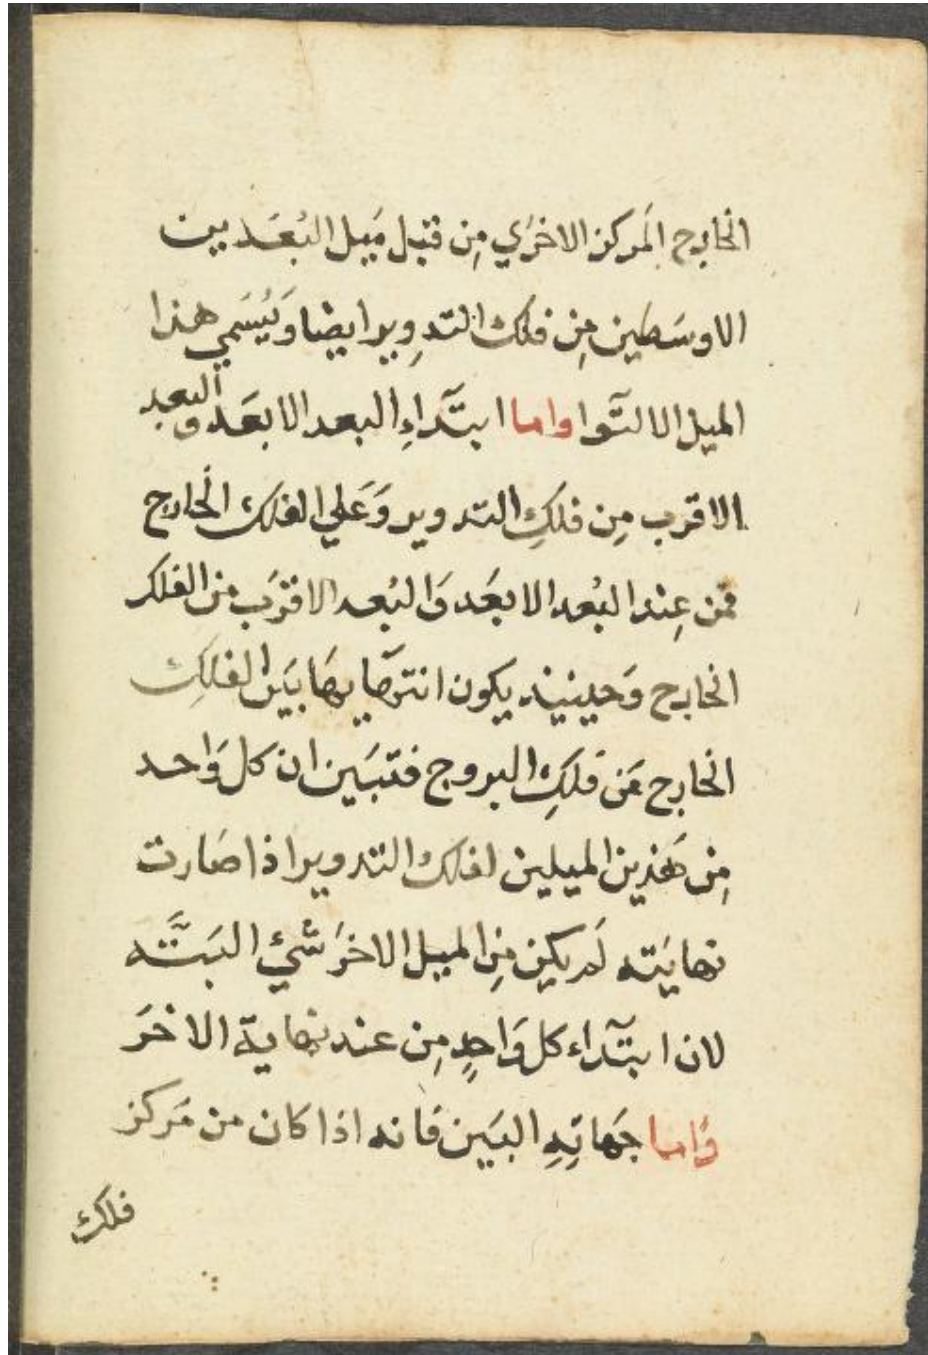 الخارج المَركز الاخرَي مِن قبل مَيل البُعَدين
الاوسَطين مِن فلك التدِوير ايضا وَيُسَمي هذا
الميل الالتَوا واما ابتَدآءِ البعد الابعَد والبعد
الاقرب مِن فلكِ التدوير وَعَلي الفلك الخارج
فمن عِند البُعد الابعَد وَالبُعد الاقرَب من الفلك
الخارج وَحينيذ يكون انترَحَا بهَا بَين الفلكِ
الخارج عَن فلكِ البروج فتبَين ان كل وَاحد
مِن هَذين الميلين لفلك التدوير اذا صَارت
نهايَته لَم يكن مِن الميل الاخرَ شئ البَتَّه
لان ابتدآء كل وَاحدٍ مِن عند نهاية الاخرَ
وَاما جَهاتِهِ البَين فَانه اذا كان من مَركز
فلك